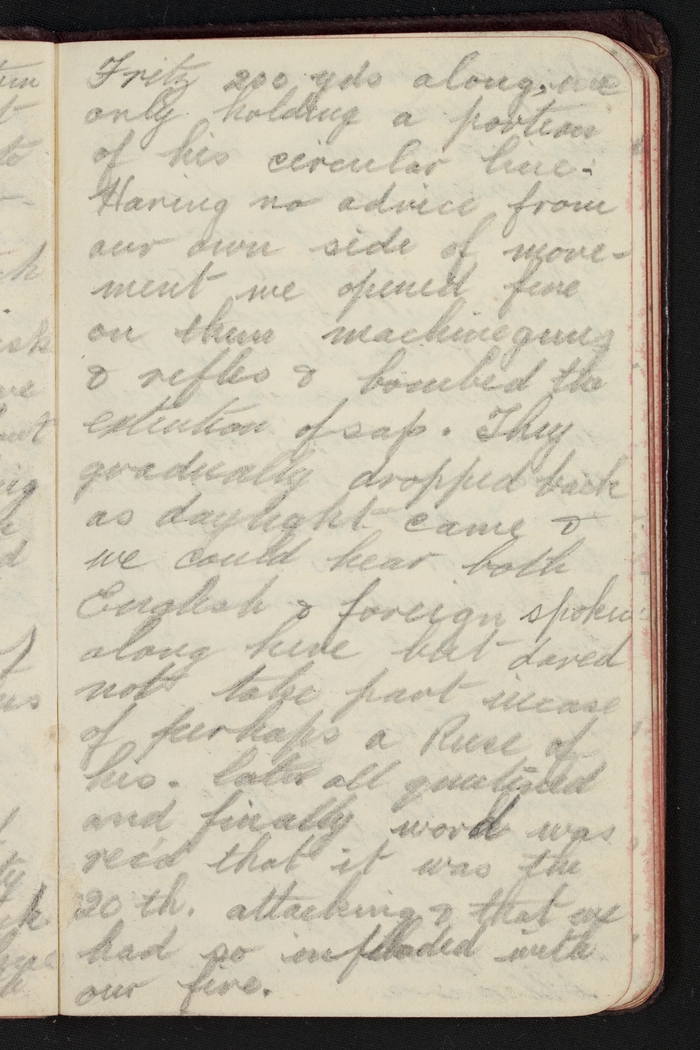 Fritz 200 yds along, we
only holding a portion
of his circular line.
Having no advice from
our own side of move-
ment we opened fire
on them machineguns
& refles & bombed the
extention of sap. They
gradually dropped back
as daylight came &
we could hear both
English & foreign spoken
along here but dared
not take part incase
of perhaps a Ruse of
his. Later all quietened
and finally word was
recd that it was the
20th. attacking & that we
had so enfiladed with
our fire.